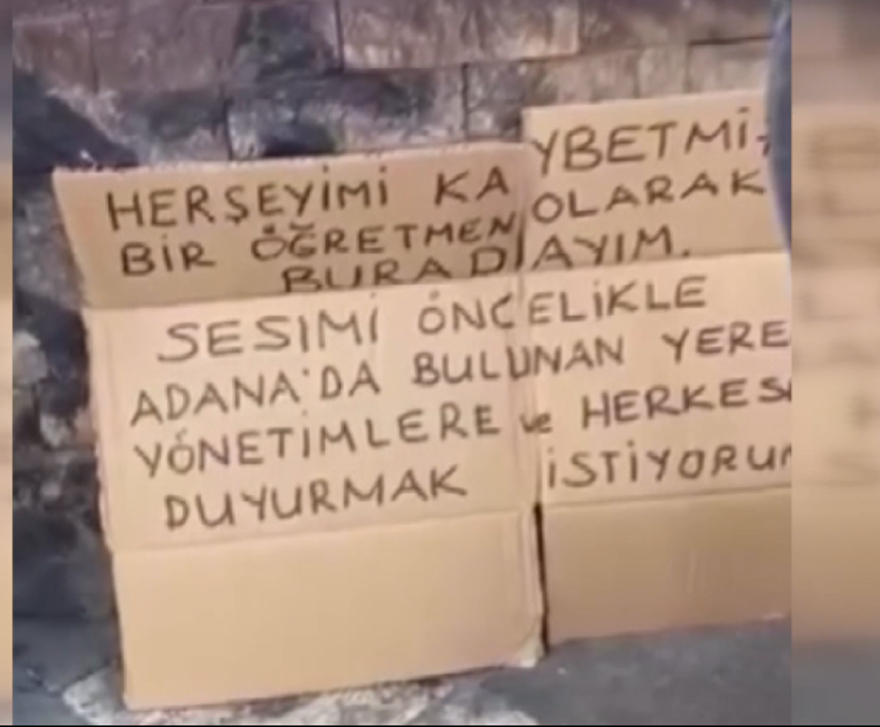 HERŞEYİMİ KAYBETMİŞ
BİR ÖĞRETMEN OLARAK
BURADAYIM.
SESİMİ ÖNCELİKLE
ADANA'DA BULUNAN YERE
YÖNETİMLERE ve HERKES
DUYURMAK İSTİYORUM